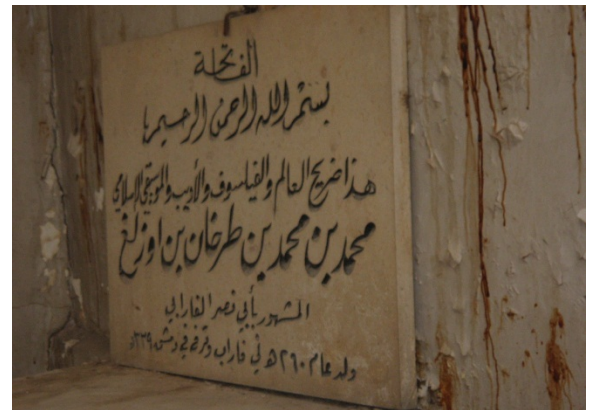 الفاتحة
بسم الله الرحمن الرحيم
هذا ضريح العالم والفيلسوف والأديب والموسيقي الإسلامي
محمد بن محمد بن طرخان بن اوزلغ
المشهور بأبي نصر الفارابي
ولد عام ٢٦٠ه في فاراب وتوفي في دمشق ٣٣٩ه